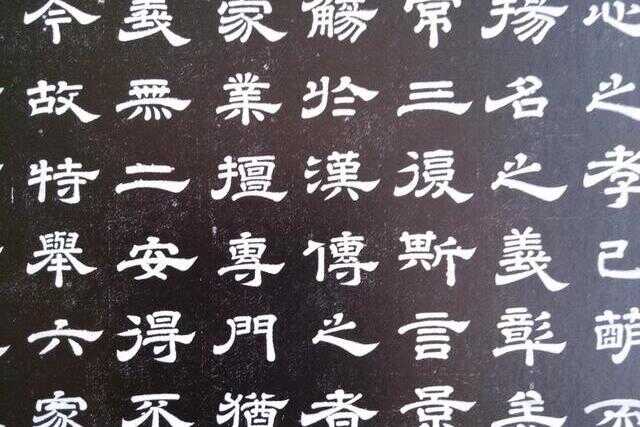 之孝已萌
揚名之義彰
常三復斯言景
觴於漢傳之者
家業擅專門猶
義無二安得不
今故特舉六家